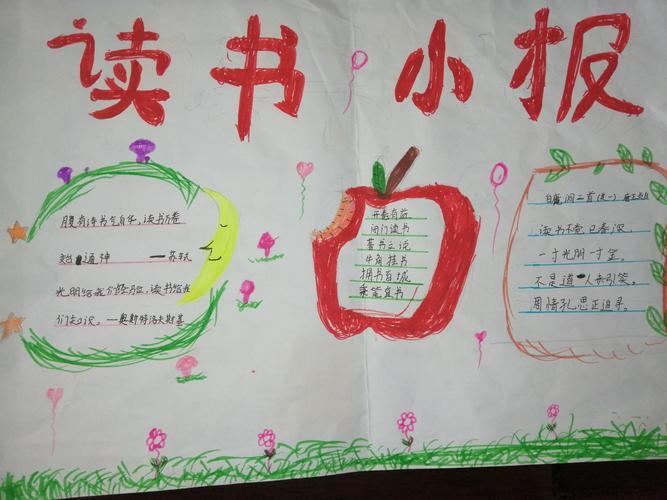 读书小报
腹有诗书气自华,读书万卷
始通神 ——苏轼
光明给我们经验,读书给我
们知识。——奥斯特洛夫斯基
开卷有益
闭门读书
著书立说
牛角挂书
拥书百城
乘笔直书
白鹿洞二首(其一)
读书不觉已春深,
一寸光阴一寸金。
不是道人来引笑,
周情孔思正追寻。